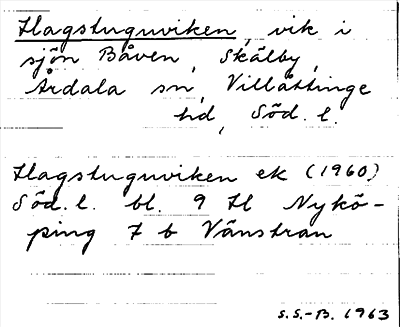 Hagstuguviken, vik i
sjön Båven, Skälby,
Årdala sn, Villåttinge
hd, Söd. l.
Hagstuguviken ek (1960)
Söd. l. bl. 9 H Nykö-
ping 7 b Vänstran
S.S.-B. 1963